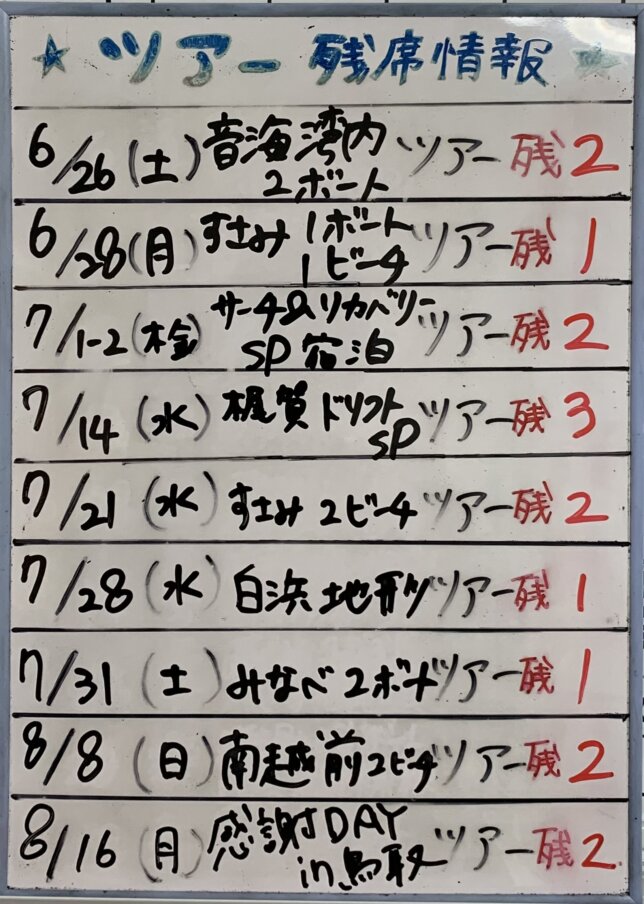 ☆ ツアー 残席情報 ☆
6/26(土) 音海湾内 ツアー 残2
2ボート
6/28(月) すさみ 1ボート ツアー 残1
1ビーチ
7/1-2(木金) サーチ&リカバリー ツアー 残2
SP 宿泊
7/14(水) 梶賀 ドリフト ツアー 残3
SP
7/21(水) すさみ 2ビーチ ツアー 残2
7/28(水) 白浜 地形 ツアー 残1
7/31(土) みなべ 2ボート ツアー 残1
8/8(日) 南越前 2ビーチ ツアー 残2
8/16(月) 感謝DAY ツアー 残2
in 鳥取